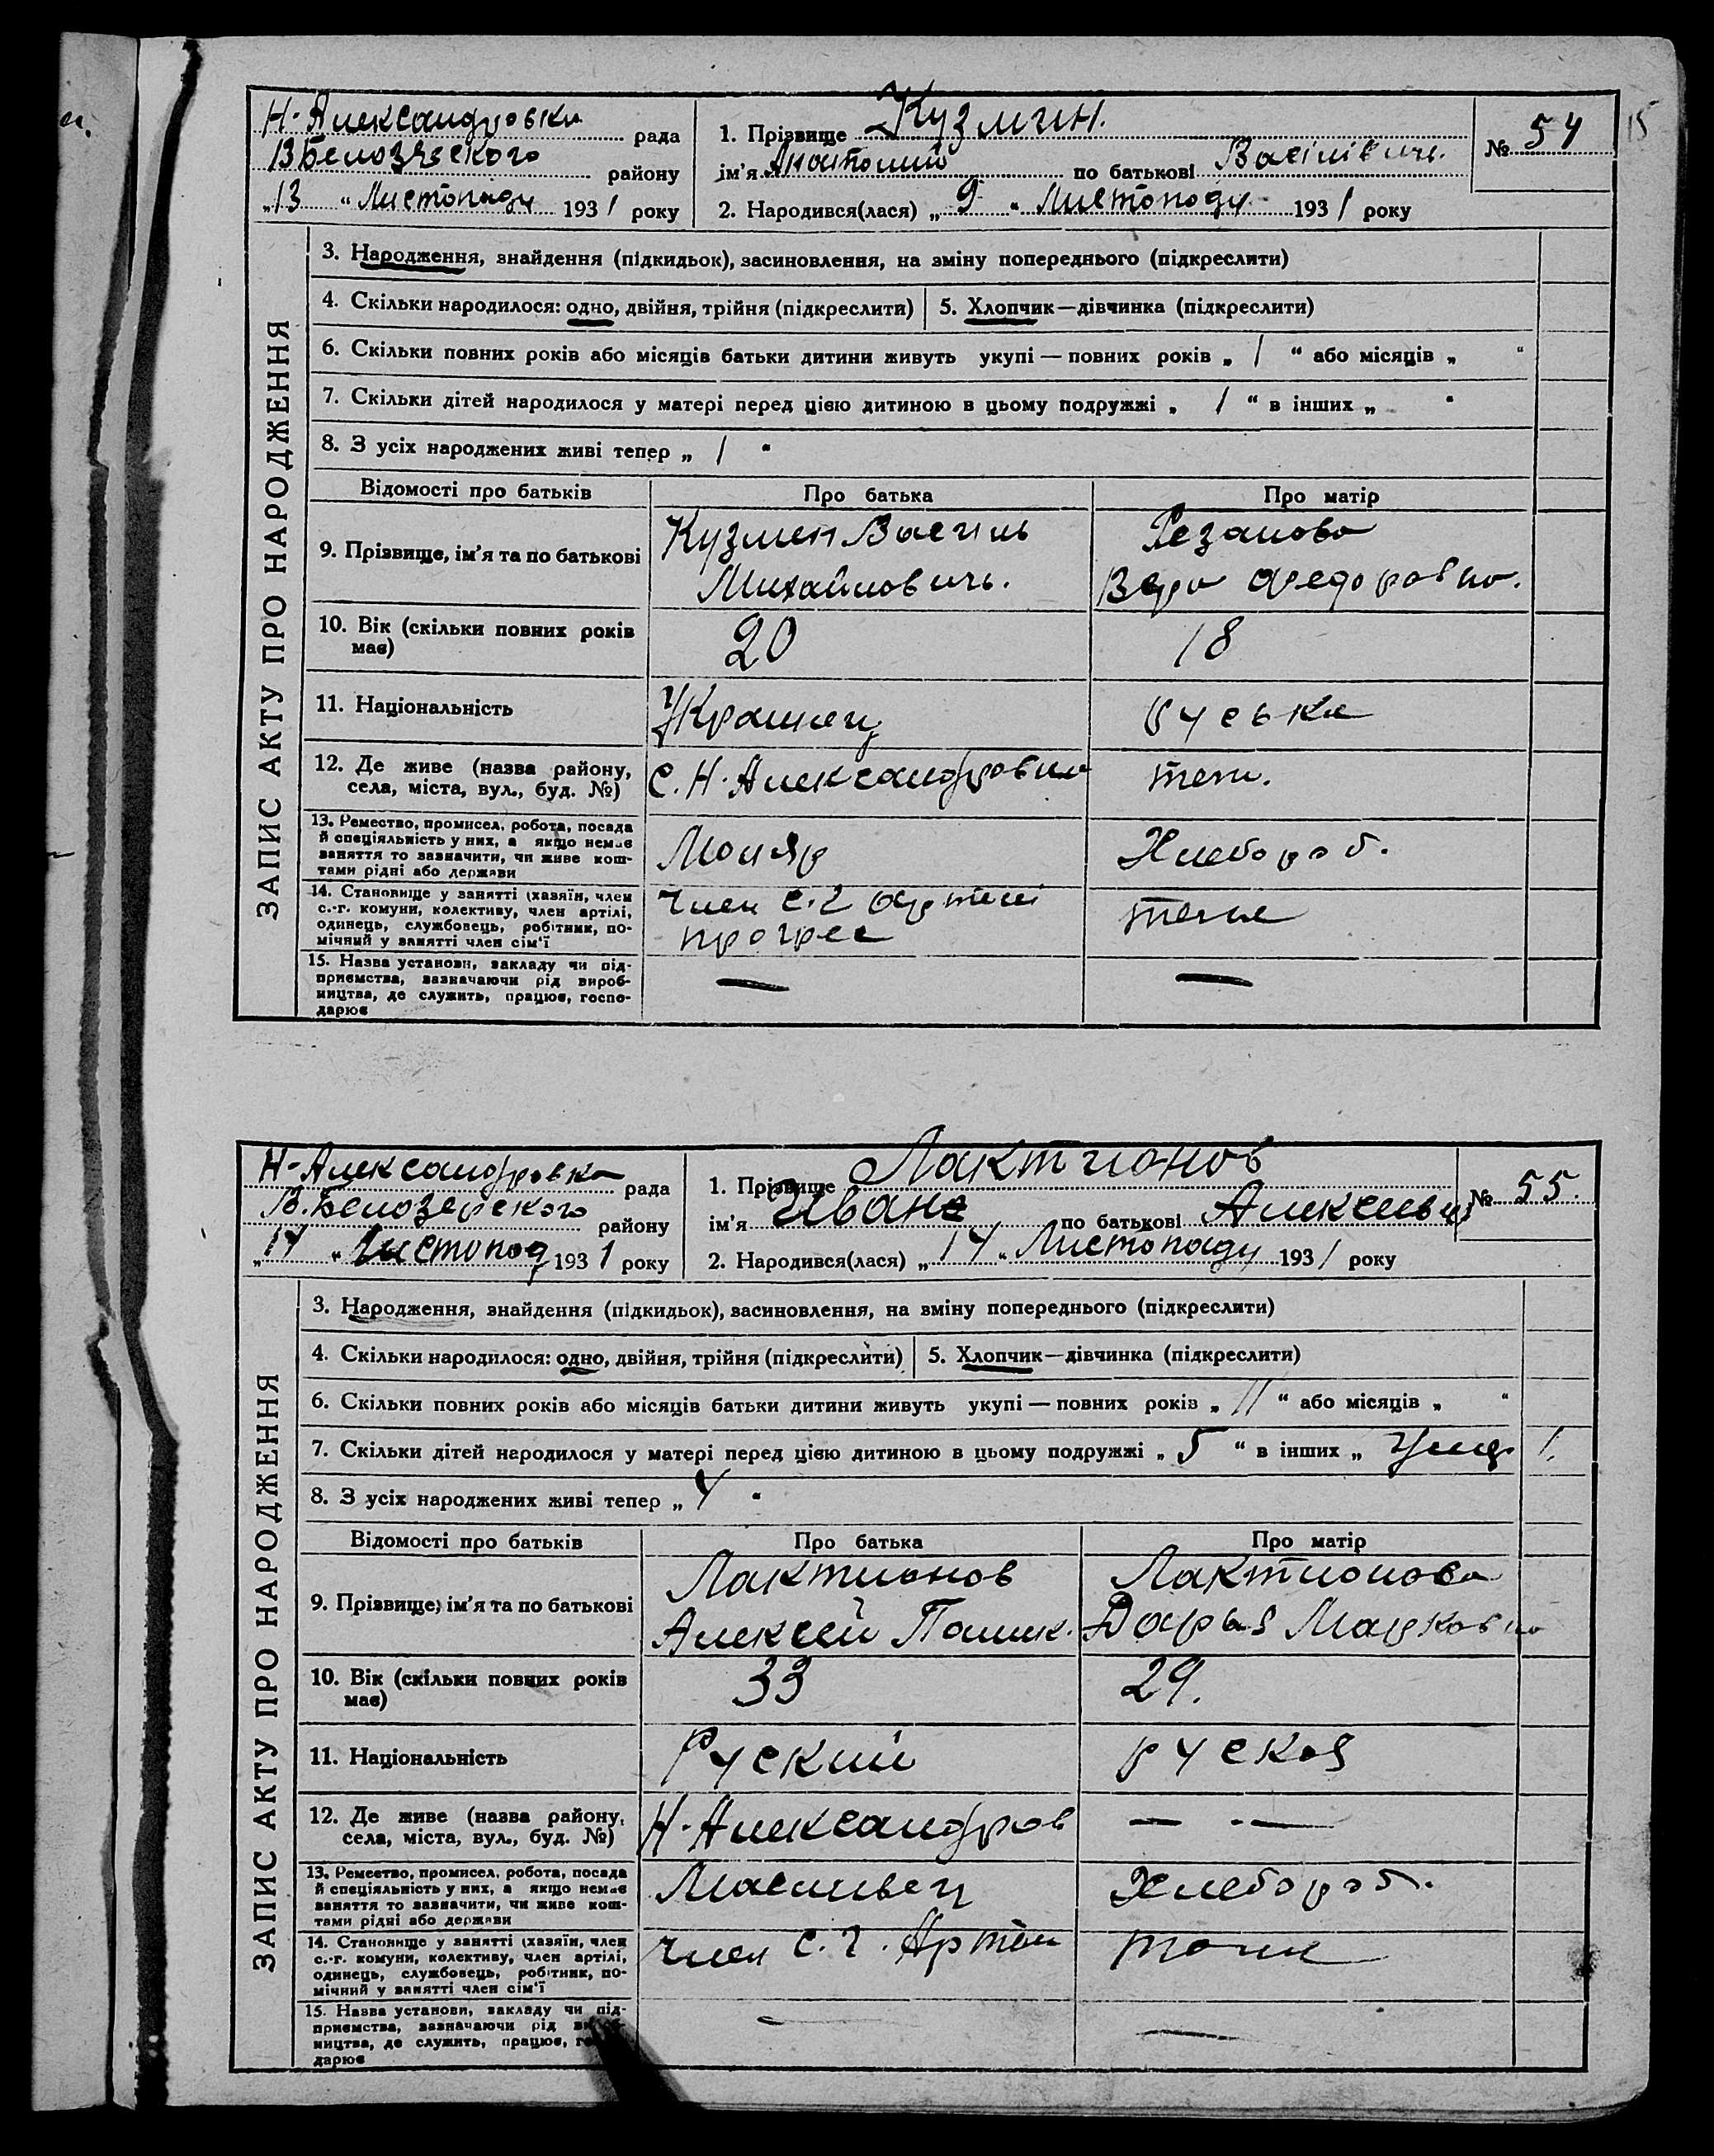 15
Н-Александровка рада
В Белозяского району
„13 “ Листопаду 1931 року
1. Прізвище Кузмин.
ім'я Анатолий по батькові Васілівичь.
2. Народився(лася) „ 9 “ Листопаду 1931 року
№ 54
ЗАПИС АКТУ ПРО НАРОДЖЕННЯ
3. Народження, знайдення (підкидьок), засиновлення, на зміну попереднього (підкреслити)
4. Скільки народилося: одно, двійня, трійня (підкреслити) 5. Хлопчик—дівчинка (підкреслити)
6. Скільки повних років або місяців батьки дитини живуть укупі — повних років „ 1 “ або місяців „ “
7. Скільки дітей народилося у матері перед цією дитиною в цьому подружжі „ 1 “ в інших „ “
8. З усіх народжених живі тепер „ 1 “
Відомості про батьків Про батька Про матір
9. Прізвище, ім'я та по батькові
Кузмен Василь
Михайлович.
Резанова
Вера Федоровна.
10. Вік (скільки повних років
має)
20
18
11. Національність
Украинец
руська
12. Де живе (назва району,
села, міста, вул., буд. №)
с. Н. Александровка
13. Ремество, промисел, робота, посада
й спеціяльність у них, а якщо немає
заняття то зазначити, чи живе кош-
тами рідні або держави
Маляр
Хлебороб.
14. Становище у занятті (хазяїн, член
с.-г. комуни, колективу, член артілі,
одинець, службовець, робітник, по-
мічний у занятті член сім'ї
член с.г артілі
прогрес
15. Назва установи, закладу чи під-
приємства, зазначаючи рід вироб-
ництва, де служить, працює, госпо-
дарює
—
—
Н-Александровка рада
В. Белозерского району
„ 14 “ Листопад 1931 року
1. Прізвище Лактионов
ім'я Иван по батькові Алексеевич
2. Народився(лася) „ 14 “ Листопаду 1931 року
№ 55.
ЗАПИС АКТУ ПРО НАРОДЖЕННЯ
3. Народження, знайдення (підкидьок), засиновлення, на зміну попереднього (підкреслити)
4. Скільки народилося: одно, двійня, трійня (підкреслити) 5. Хлопчик—дівчинка (підкреслити)
6. Скільки повних років або місяців батьки дитини живуть укупі — повних років „ 11 “ або місяців „ “
7. Скільки дітей народилося у матері перед цією дитиною в цьому подружжі „ 5 “ в інших „ 1.
8. З усіх народжених живі тепер „ 4 “
Відомості про батьків Про батька Про матір
9. Прізвище, ім'я та по батькові
Лактионов
Алексей
Лактионова
Дарья Марковна
10. Вік (скільки повних років
має)
33
29.
11. Національність
Руский
руская
12. Де живе (назва району,
села, міста, вул., буд. №)
Н-Александров
— · —
13. Ремество, промисел, робота, посада
й спеціяльність у них, а якщо немає
заняття то зазначити, чи живе кош-
тами рідні або держави
Хлебороб.
14. Становище у занятті (хазяїн, член
с.-г. комуни, колективу, член артілі,
одинець, службовець, робітник, по-
мічний у занятті член сім'ї
член с. г. Артели
15. Назва установи, закладу чи під-
приємства, зазначаючи рід вироб-
ництва, де служить, працює, госпо-
дарює
—
—